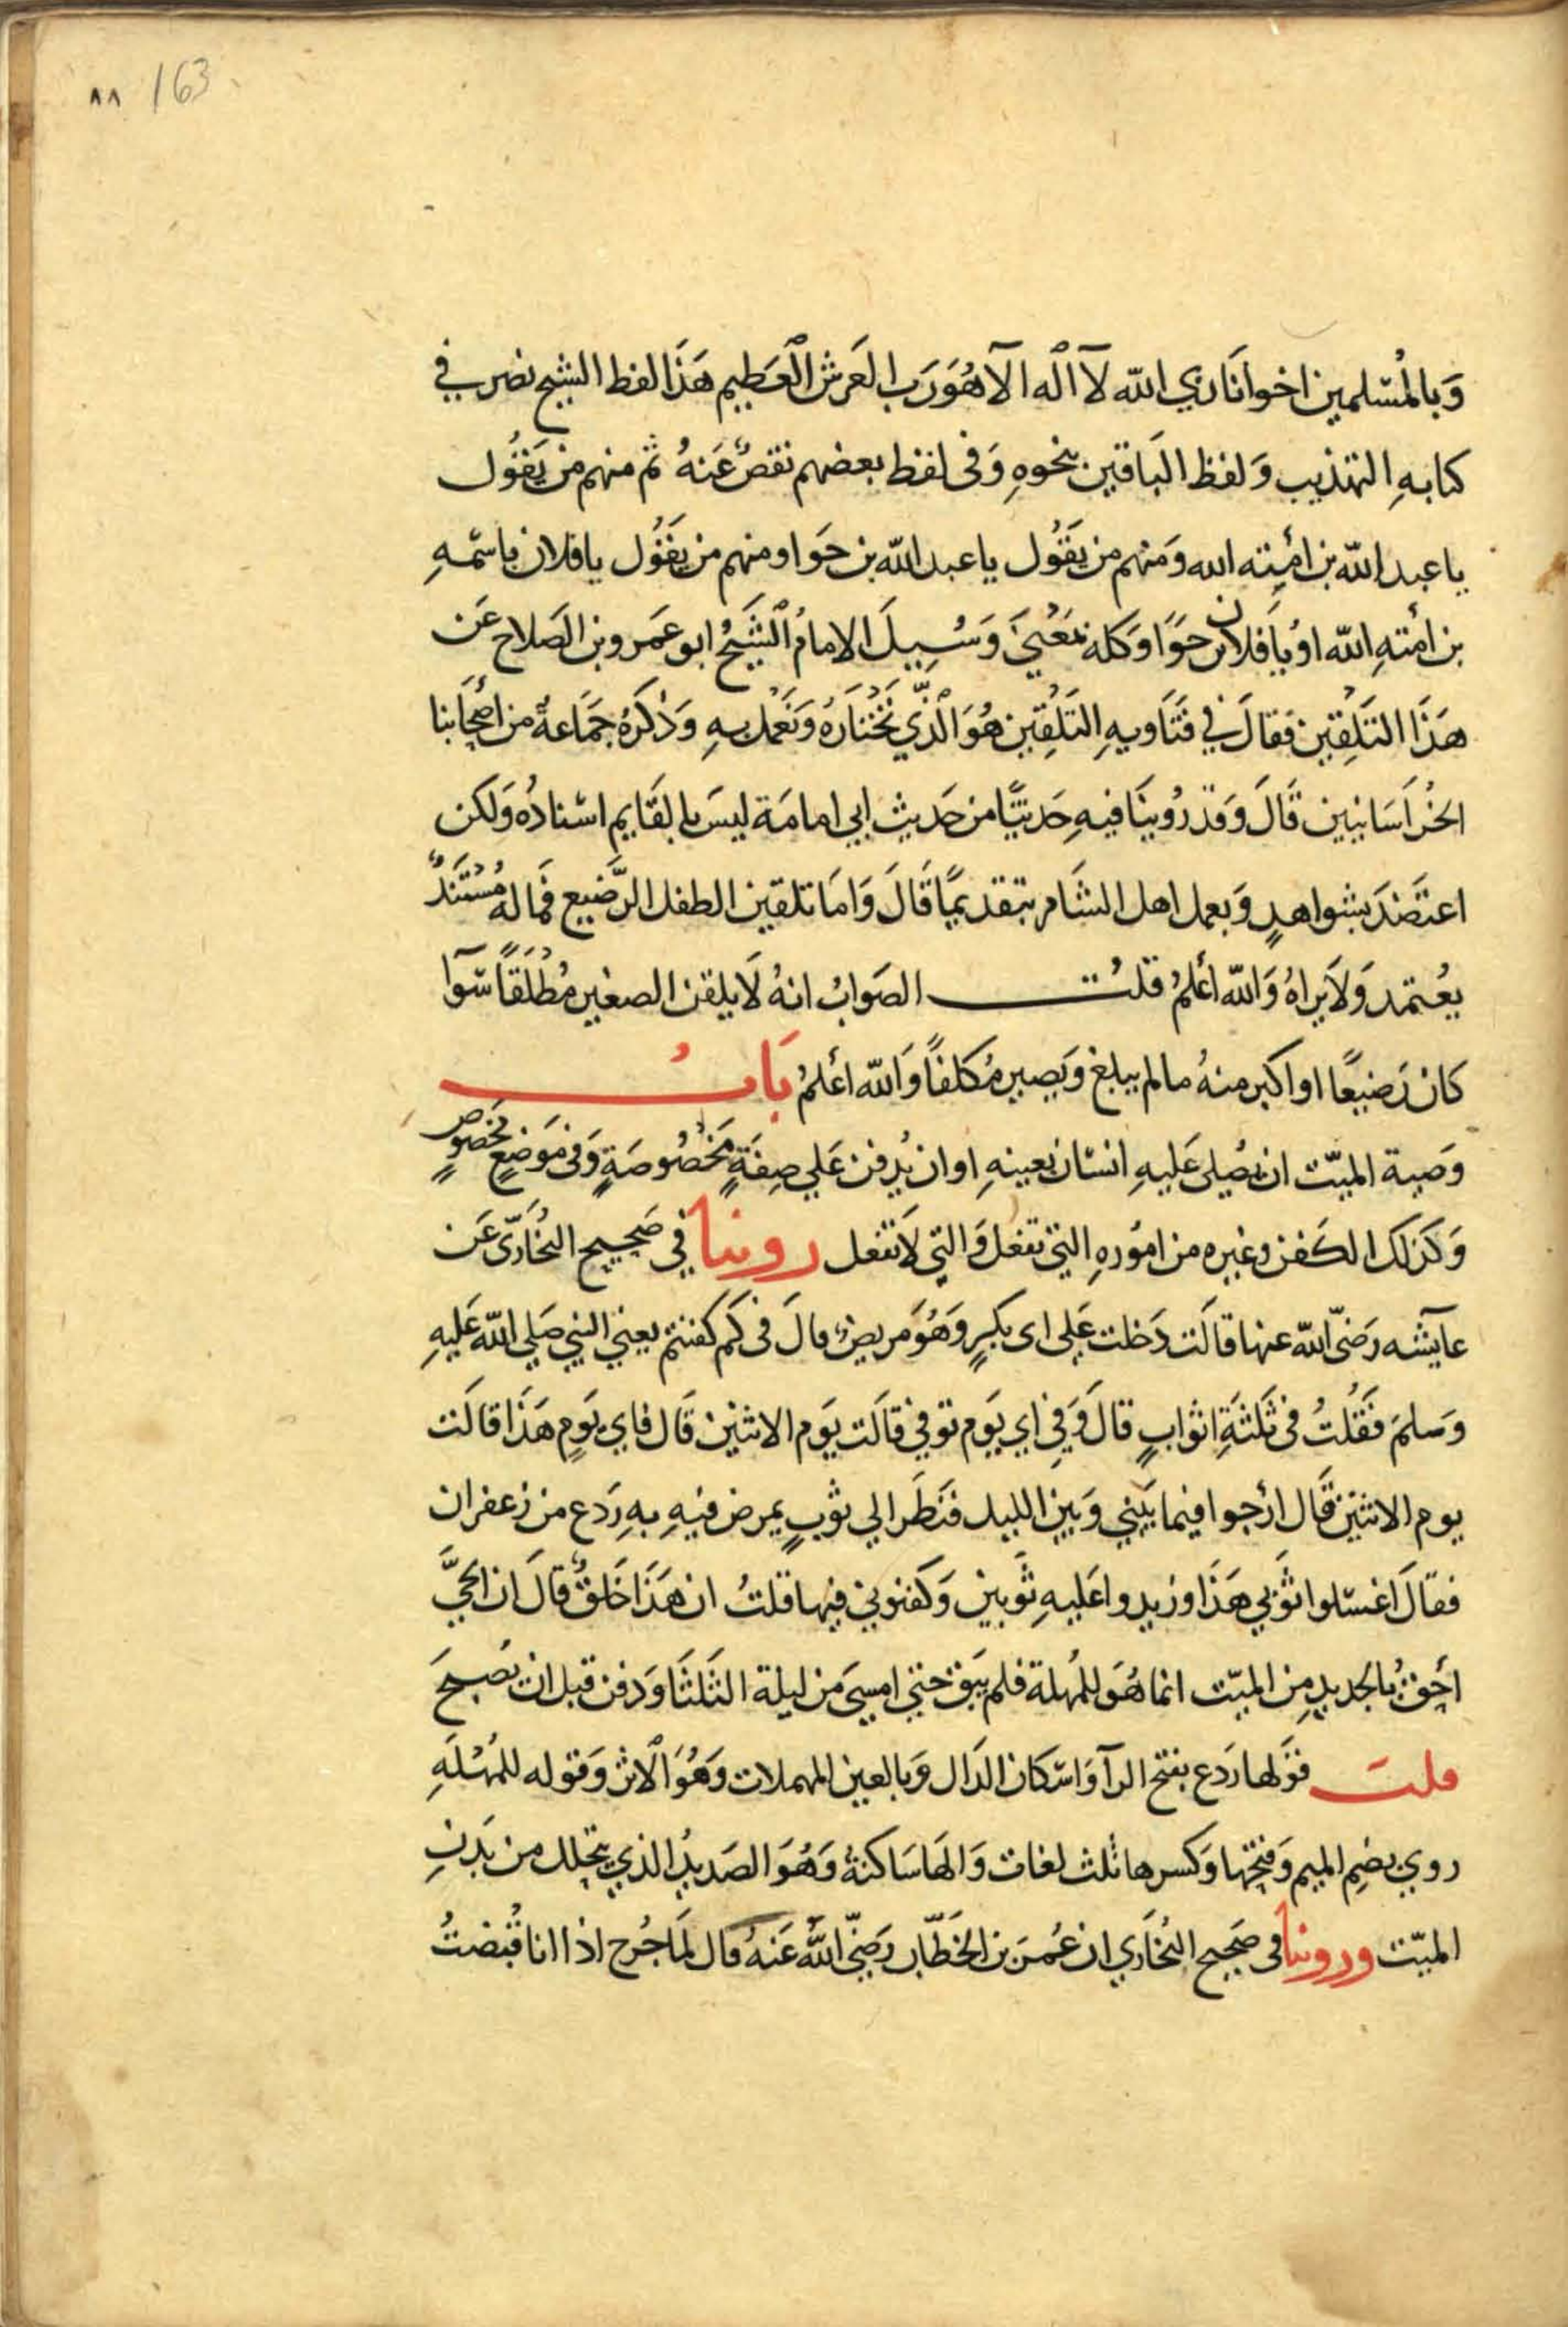 ٨٨ 163
وَبالمُسْلمين اخوانَا ربي الله لآ اله الآ هُوَ رَب العَرش العَظِيم هَذَا لفظ الشيخ نصر في
كتابهِ التهذيب وَلفظ البَاقين بنحوهِ وَفى لفظ بعضهم نقصٌ عَنهُ ثم منهم من يَقوُل
يا عبد الله بن امَتِه الله وَمنهم من يَقوُل يا عبد الله بن حَوا ومنهم من يقوُل يا فلان باسمْهِ
بن امَتهِ الله اوْ يَا فلان بن حَوَّا وَكله بمَعْنيً وَسُيِلَ الامامُ الشَيخُ ابو عمَرو بن الصَلاح عَن
هَذَا التَلقين فَقالَ في فَتَاويهِ التَلقين هُوَ الَّذي نَخْتَارَهُ وَنَعْمل بهِ وَذكرَهُ جَمَاعةٌ من اصْحَابنا
الخُرَاسَانيين قَالَ وَقد رُوينَا فيهِ حَديثًا من حَديث ابي امامَة ليسَ بالقَايم اسْنادُه وَلكن
اعتَضَدَ بشواهدٍ وَبعمل اهل الشَام به قديمًا قَالَ وَامَا تلقين الطفل الرَّضيع فمَاله مُسْتَنَدٌ
يعُتمد وَلاَ يراهُ وَالله اعْلمُ قلتُ الصَوابُ انهُ لَا يلقن الصغير مُطْلَقاً سَوآ
كان رَضيعًا او اكبر منهُ مالم يبلغ وَيَصير مُكلفًا وَالله اعْلمُ بَابُ
وَصية الميّت ان يصُلى عَليهِ انسْان بعينهِ او ان يُدفن عَلي صِفةٍ مَخْصُوصَةٍ وَفى مَوَضعٍ مخَصُوصٍ
وَكذلك الكَفن وغيره من امُورهِ التي تفعَل وَالتي لَا تفعل روينا في صَحيح البُخارَي عَن
عآيشه رَضىَ الله عنها قالَت دَخلت عَلى اى بكرٍ وَهُوَ مريضٌ قالَ فى كَم كفنتم يعني النبي صَلي الله عَليهِ
وَسَلمَ فَقَلْتُ فى ثَلثَةِ اثوابٍ قالَ وَفي اي يَوم توفي قالَت يَوم الاثنين قَال فاي يَومٍ هَذَا قالَت
يوم الاثنَين قَال ارْجوا فيما بيَني وَبَين الليل فنَظَر الي ثوبٍ يمرض فيهِ بهِ رَدع من زعفران
فقالَ اغسْلوا ثوَبي هَذَا وزيدوا عَليهِ ثَوبين وَكفنوني فيها قلتُ ان هَذَا خَلقٌ قالَ ان الحيَّ
احِقُ بالجديدِ مِن الميّت انما هُوَ للمُهلة فلم يَتَوَف حتي امسيَ من ليلة الثَلثَا وَدفن قبل ان يُصبحَ
قلت قوَلها رَدَع بفتح الرآ وَاسْكان الدَال وَبالعين المهملات وَهُوَ الاثر وَقوله للمُهْلَهِ
روي بضِم الميم وَفتحِها وَكسرها ثلث لغات وَالهَا سَاكنةُ وَهُوَ الصَديدُ الذي يتحَلل من بَدنِ
الميّت وروينا فى صَحيح البُخَاري ان عُمَر بن الخَطّاب رَضيَ اللهُ عَنهُ قال لمَا جُرح اذا انا قُبضتُ